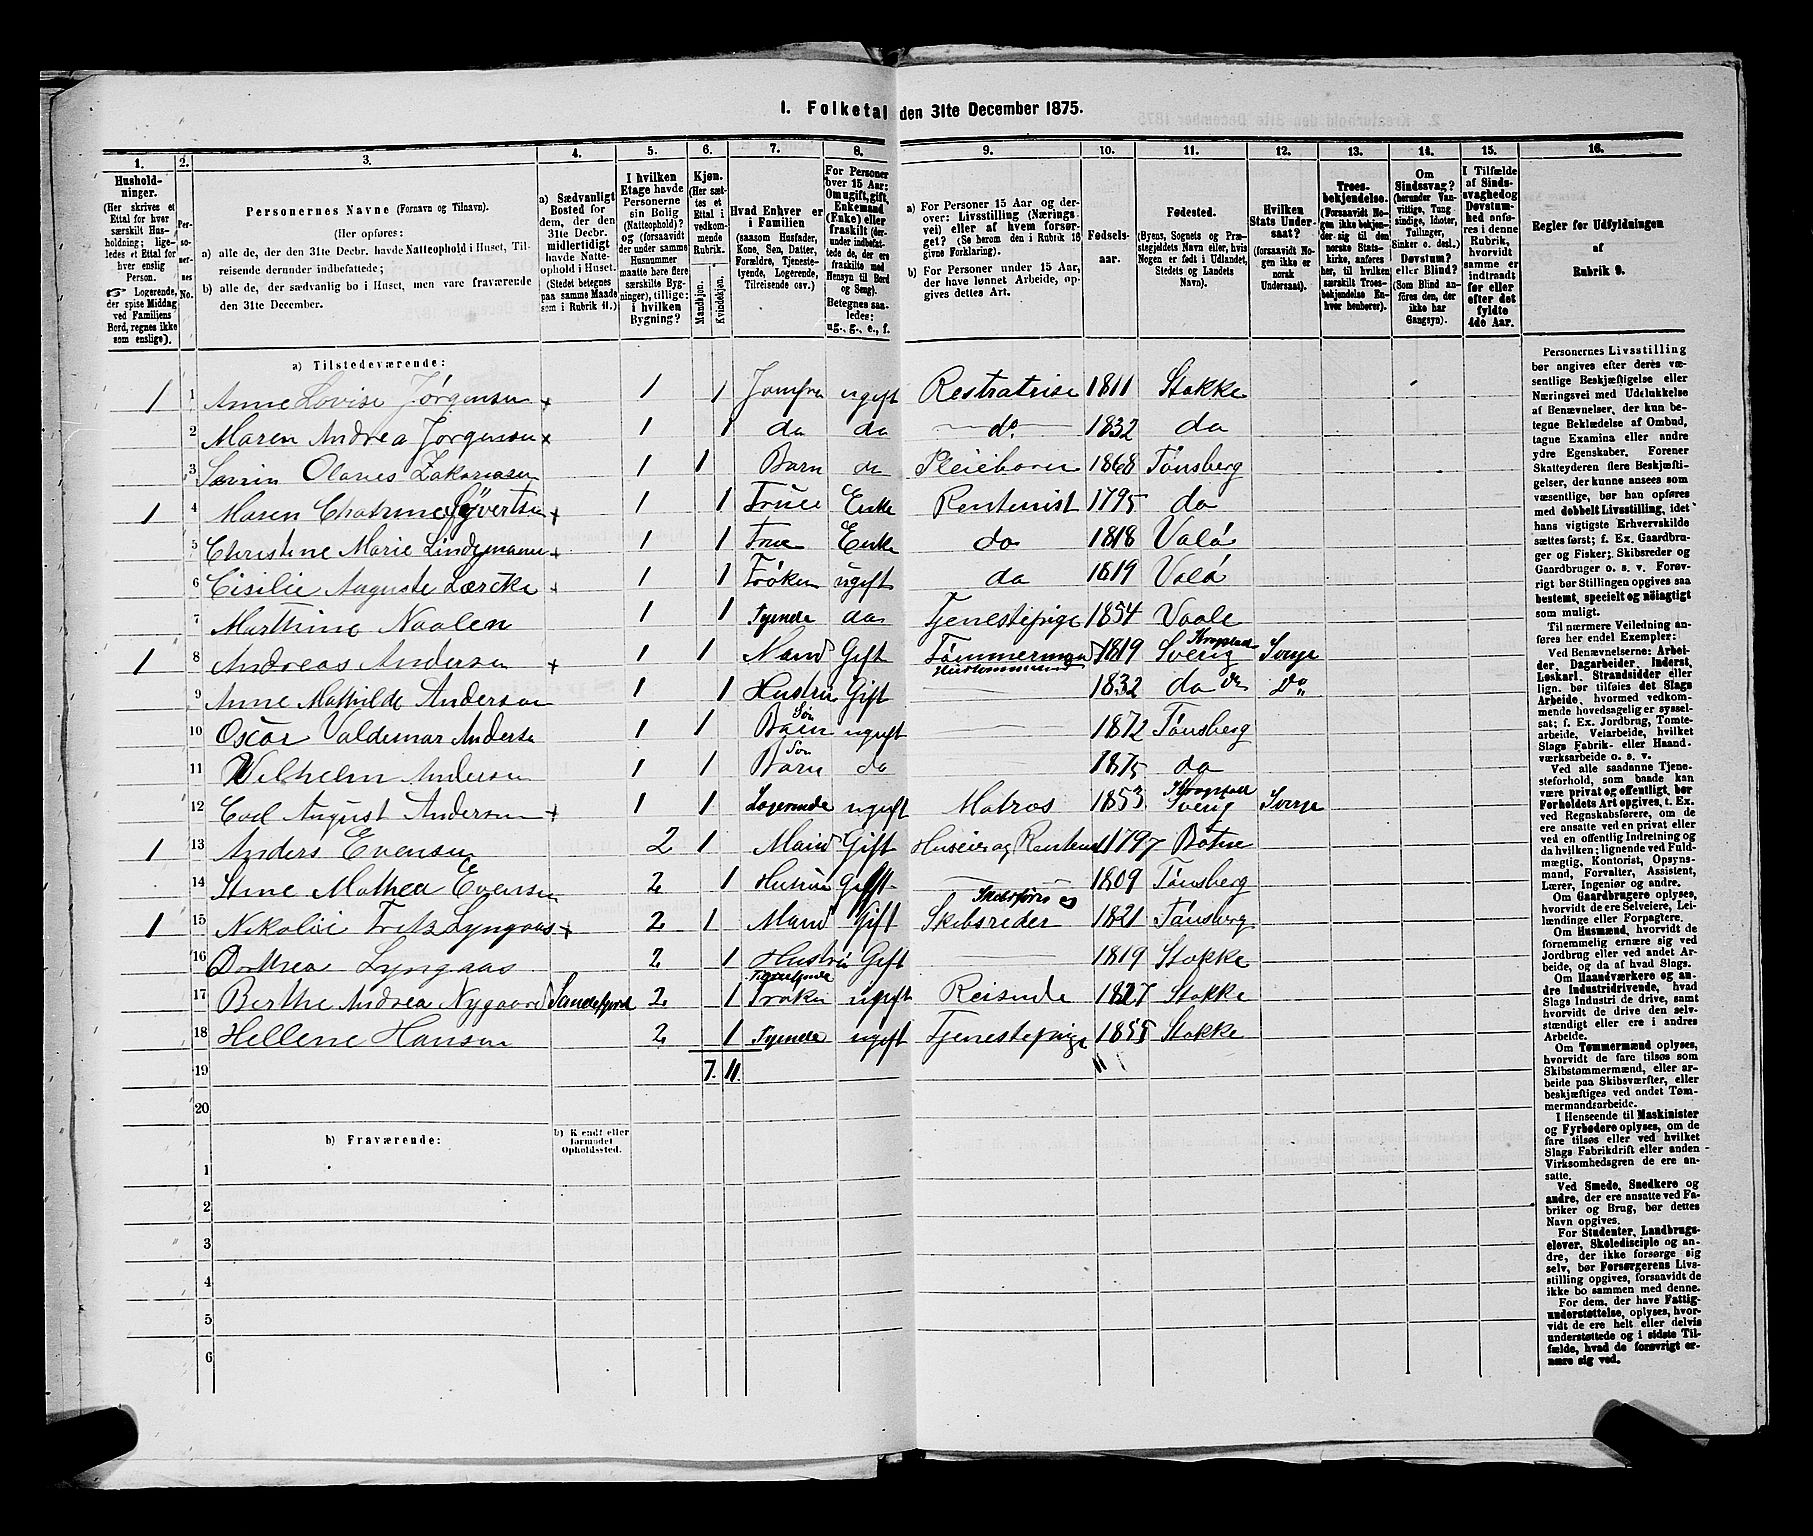 1. Folketal den 31te December 1875.
1. 2. 3. 4. 5. 6. 7. 8. 9. 10. 11. 12. 13. 14. 15. 16.
Hushold-
ninger.
(Her skrives et
Ettal for hver
særskilt Hus-
holdning; lige-
ledes et Ettal for
hver enslig
Person.
☞ Logerende,
der spise Middag
ved Familiens
Bord, regnes ikke
som enslige).
Per-
so-
ner-
nes
No.
Personernes Navne (Fornavn og Tilnavn).
(Her opføres:
a) alle de, der den 31te Decbr. havde Natteophold i Huset, Til-
reisende derunder indbefattede;
b) alle de, der sædvanlig bo i Huset, men vare fraværende
den 31te December.
a) Sædvanligt
Bosted for
dem, der den
31te Decbr.
midlertidigt
havde Natte-
ophold i Huset.
(Stedet betegnes
paa samme Maade
som i Rubrik 11.)
I hvilken
Etage havde
Personerne
sin Bolig
(Natteophold)?
og (forsaavidt
der under samme
Husnummer
maatte høre flere
særskilte Byg-
ninger), tillige:
i hvilken
Bygning?
Kjøn.
(Her sæt-
tes et
Ettal i
vedkom-
mende
Rubrik.
Mandkjøn.
Kvindekjøn.
Hvad Enhver er
i Familien
(saasom Husfader,
Kone, Søn, Datter,
Forældre, Tjeneste-
tyende, Logerende,
Tilreisende osv.)
For Personer
over 15 Aar:
Om ugift, gift,
Enkemand
(Enke) eller
fraskilt (der-
under indbefat-
tede de, der ere
fraskilte med
Hensyn til Bord
og Seng).
Betegnes saa-
ledes:
ug., g., e., f.
a) For Personer 15 Aar og der-
over: Livsstilling (Nærings-
vei) eller af hvem forsør-
get? (Se herom den i Rubrik 16
givne Forklaring).
b) For Personer under 15 Aar,
der have lønnet Arbeide, op-
gives dettes Art.
Fødsels-
aar.
Fødested.
(Byens, Sognets og Præ-
stegjeldets Navn eller, hvis
Nogen er født i Udlandet,
Stedets og Landets
Navn).
Hvilken
Stats Under-
saat?
(forsaavidt No-
gen ikke er
norsk
Undersaat).
Troes-
bekjendelse.
(Forsaavidt No-
gen ikke bekjen-
der sig til den
norske Stats-
kirke, anføres
her, til hvilken
særskilt Troes-
bekjendelse En-
hver henhører).
Om
Sindssvag?
(herunder Van-
vittige, Tung-
sindige, Idioter,
Tullinger,
Sinker o. desl.)
Døvstum?
eller Blind?
(Som Blind an-
føres den, der
ikke har
Gangsyn).
I Tilfælde
af Sinds-
svaghed og
Døvstum-
hed anfø-
res i denne
Rubrik,
hvorvidt
samme er
indtraadt
før eller
efter det
fyldte
4de Aar.
Regler for Udfyldningen
af
Rubrik 9.
a) Tilstedeværende:
1 1 Anne Lovise Jørgensen + 1 1 Jomfru ugift 1811 Stokke
2 Maren Andrea Jørgensen × 1 1 do do do 1832 do
3 Olaves Zakariasen 1 1 Barn Pleiebarn 1868 Tønsberg
1 4 Maren Syvertsen + 1 1 Frue Enke Rentenist 1795 do
5 Christine Marie Lindemann + 1 1 Frue Enke do 1818 Valø
6 Cisilie Auguste + 1 1 Frøken ugift do 1819 Valø
7 Marthine Naalen 1 1 Tyende do Tjenestepige 1854 Vaale
1 8 Andreas Andersen + 1 1 Mand Gift Tømmermand 1819 Sverig Sverge
9 Anne Mathilde Andersen 1 1 Hustru Gift 1832 do do
10 Oscar Valdemar Andersen 1 1 Barn Søn ugift 1872 Tønsberg
11 Vilhelm Andersen 1 1 Barn Søn do 1875 do
12 Carl August Andersen + 1 1 Logerende ugift Matros 1853 Sverig Sverge
1 13 Anders Evensen 2 1 Mand Gift Huseier og 1797 Botne
14 Stine Mathea Evensen 2 1 Hustru Gift 1809 Tønsberg
1 15 Nikolai Fritz Lyngaas + 2 1 Mand Gift Skibsfører og Skibsreder 1821 Tønsberg
16 Dorthea Lyngaas 2 1 Hustru Gift 1819 Stokke
17 Berthe Andrea Nygaard Sandefjord 2 1 Frøken ugift Reisende 1827 Stokke
18 Hellene Hansen 2 1 Tyende ugift Tjenestepige 1855 Stokke
19 7. 11.
20
b) Fraværende:
b) Kjendt eller
formodet
Opholdssted.
1
2
3
4
5
6
Personernes Livsstilling
bør angives efter deres væ-
sentlige Beskjæftigelse eller
Næringsvei med Udelukkelse
af Benævnelser, der kun be-
tegne Beklædelse af Ombud,
tagne Examina eller andre
ydre Egenskaber. Forener
Skatteyderen flere Beskjæfti-
gelser, der kunne ansees som
væsentlige, bør han opføres
med dobbelt Livsstilling, idet
hans vigtigste Erhvervskilde
sættes først; f. Ex. Gaardbru-
ger og Fisker; Skibsreder og
Gaardbruger o. s. v. Forøv-
rigt bør Stillingen opgives saa
bestemt, specielt og nøiagtigt
som muligt.
Til nærmere Veiledning an-
føres her endel Exempler:
Ved Benævnelserne: Arbei-
der, Dagarbeider, Inderst,
Løskarl, Strandsidder eller
lign. bør tilføies det Slags
Arbeide, hvormed vedkom-
mende hovedsagelig er syssel-
sat; f. Ex. Jordbrug, Tomte-
arbeide, Veiarbeide, hvilket
Slags Fabrik- eller Haand-
værksarbeide o. s. v.
Ved alle saadanne Tjene-
steforhold, som baade kan
være privat og offentligt, bør
Forholdets Art opgives, t. Ex.
ved Regnskabsførere, om de
ere ansatte ved en privat eller
ved en offentlig Indretning og
da hvilken; lignende ved Fuld-
mægtig, Kontorist, Opsyns-
mand, Forvalter, Assistent,
Lærer, Ingeniør og andre.
Om Gaardbrugere oplyses,
hvorvidt de ere Selveiere, Lei-
lændinge eller Forpagtere.
Om Husmænd, hvorvidt de
fornemmelig ernære sig ved
Jordbrug eller ved andet Ar-
beide, og da af hvad Slags.
Om Haandværkere og an-
dre Industridrivende, hvad
Slags Industri de drive, samt
hvorvidt de drive den selv-
stændigt eller ere i andres
Arbeide.
Om Tømmermænd oplyses,
hvorvidt de fare tilsøs som
Skibstømmermænd, eller ar-
beide paa Skibsværfter, eller
beskjæftiges ved andet Tøm-
mermandsarbeide.
I Henseende til Maskinister
og Fyrbødere oplyses, om de
fare tilsøs eller ved hvilket
Slags Fabrikdrift eller anden
Virksomhedsgren de ere an-
satte.
Ved Smede, Snedkere og
andre, der ere ansatte ved Fa-
briker og Brug, bør dettes
Navn opgives.
For Studenter, Landbrugs-
elever, Skoledisciple og an-
dre, der ikke forsørge sig
selv, bør Forsørgerens Livs-
stilling opgives, forsaavidt de
ikke bo sammen med denne.
For dem, der have Fattig-
understøttelse, oplyses, hvor-
vidt de ere helt eller delvis
understøttede og i sidste Til-
fælde, hvad de forøvrigt er-
nære sig ved.